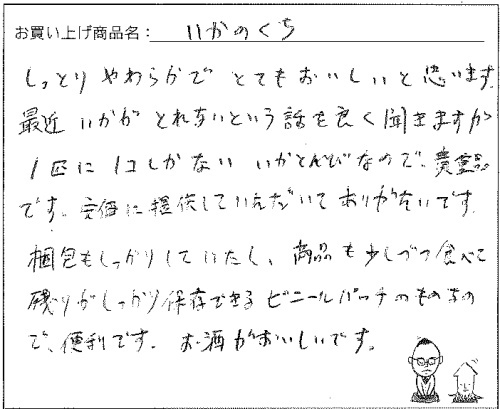 お買い上げ商品名: いかのくち
しっとりやわらかで とてもおいしいと思います。
最近 いかが とれないという話を良く聞きますが
1匹に1コしかない いかとんびなので、貴重品
です。安価に提供していただいて ありがたいです。
梱包もしっかりしていたし、商品も少しづつ食べて
残りがしっかり保存できる ビニールパッチのものなの
で、便利です。 お酒がおいしいです。